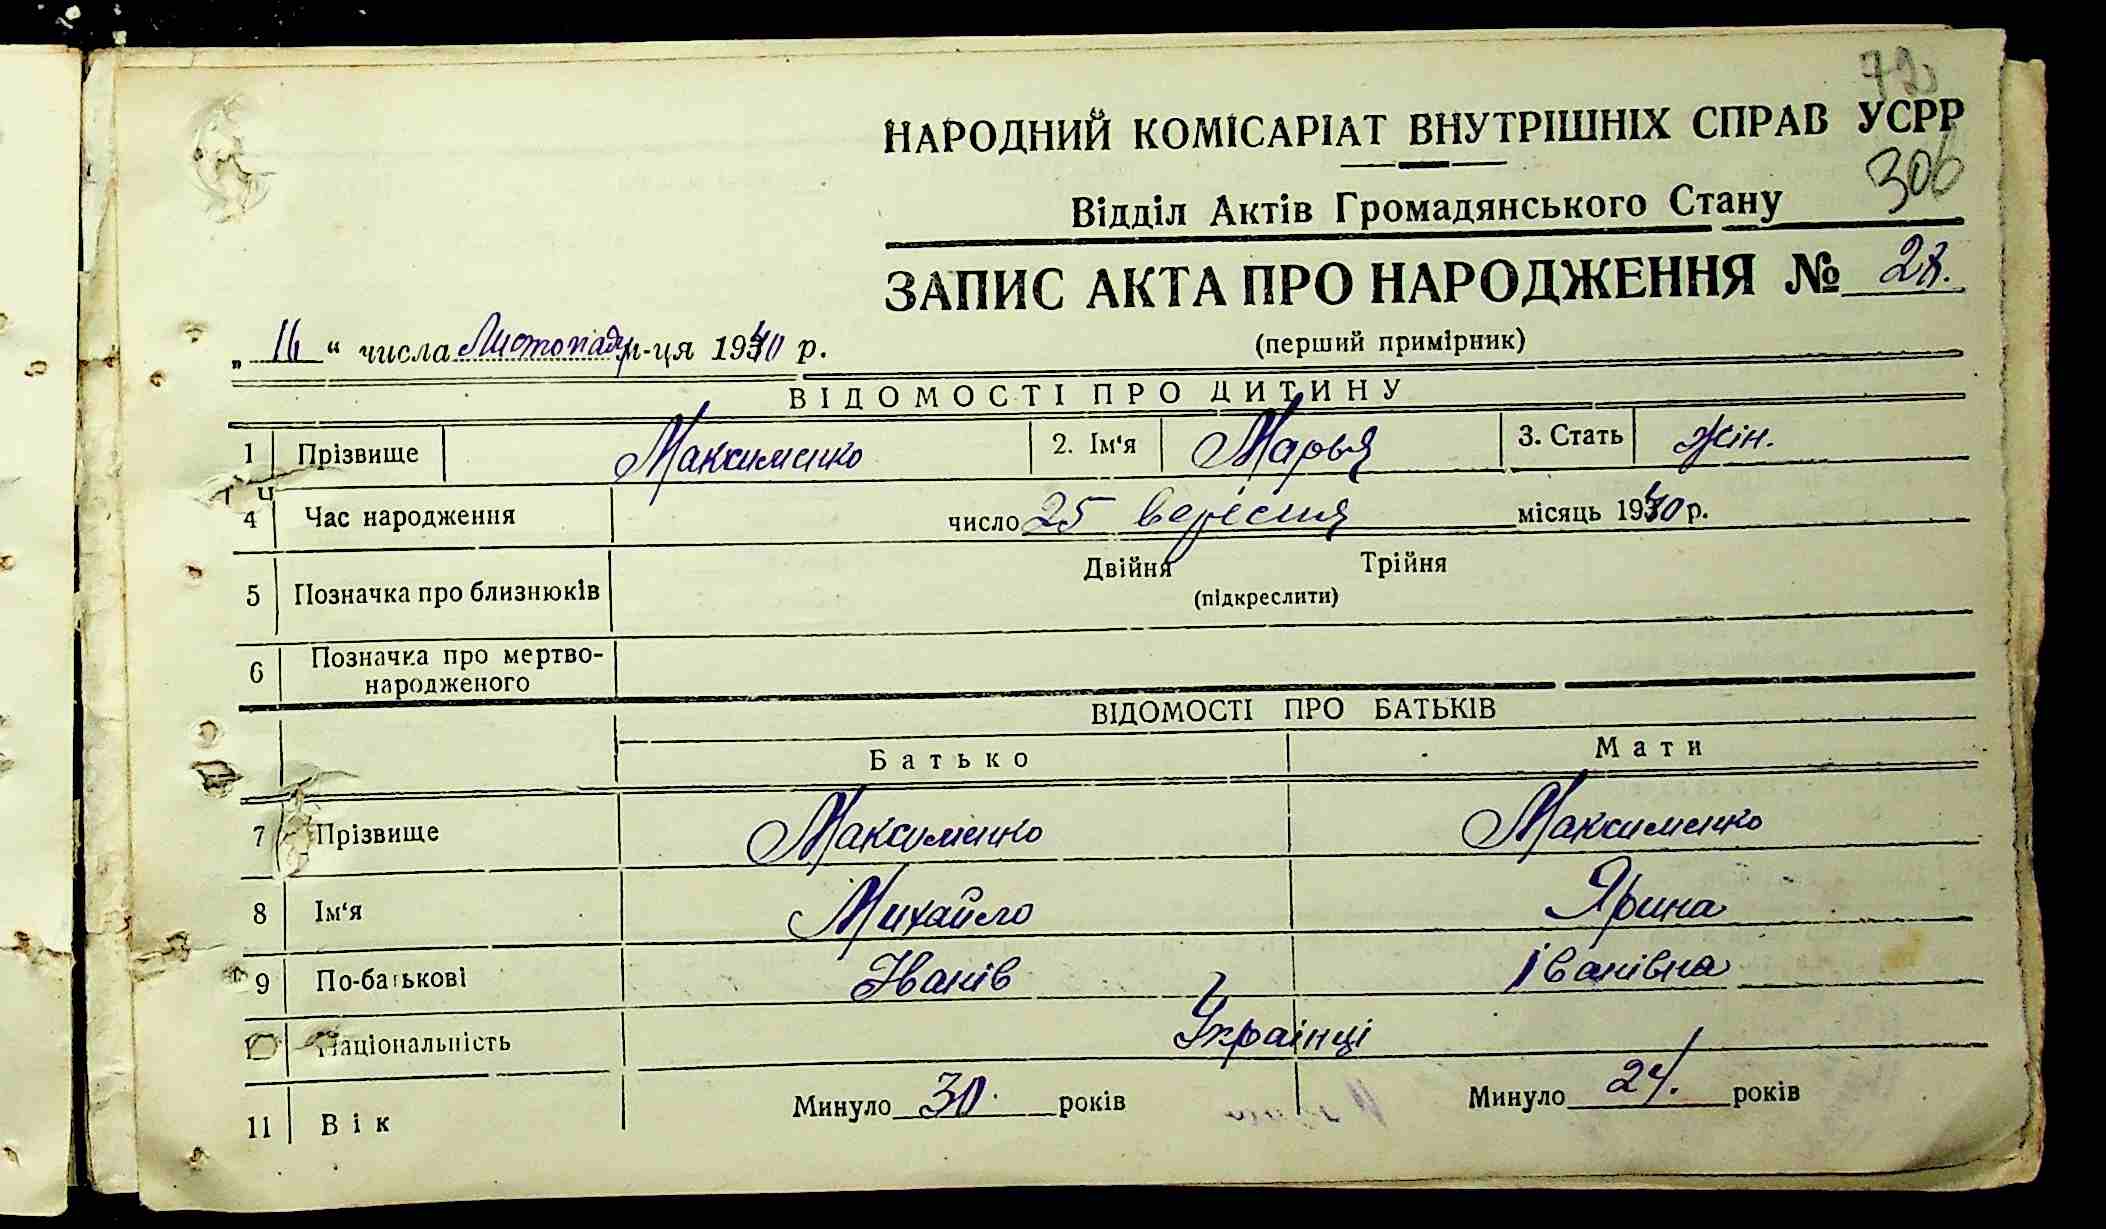 72
НАРОДНИЙ КОМІСАРІАТ ВНУТРІШНІХ СПРАВ УСРР
306
Відділ Актів Громадянського Стану
ЗАПИС АКТА ПРО НАРОДЖЕННЯ № 28.
„ 16 “ числа Листопад м-ця 1940 р.
(перший примірник)
ВІДОМОСТІ ПРО ДИТИНУ
1 Прізвище Максименко 2. Ім'я Марья 3. Стать жін.
4 Час народження число 25 вересня місяць 1940 р.
5 Позначка про близнюків Двійня Трійня
(підкреслити)
6 Позначка про мертво-
народженого
ВІДОМОСТІ ПРО БАТЬКІВ
Батько Мати
7 Прізвище Максименко Максименко
8 Ім'я Михайло Ярина
9 По-батькові Іванів Іванівна
Національність Українці
11 Вік Минуло 30. років Минуло 24. років